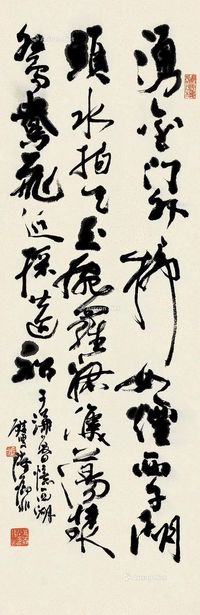 湧金門外柳如煙西子湖
頭水拍天玉腕羅裙雙蕩槳
鴛鴦飛近採蓮船
于謙夏日憶西湖